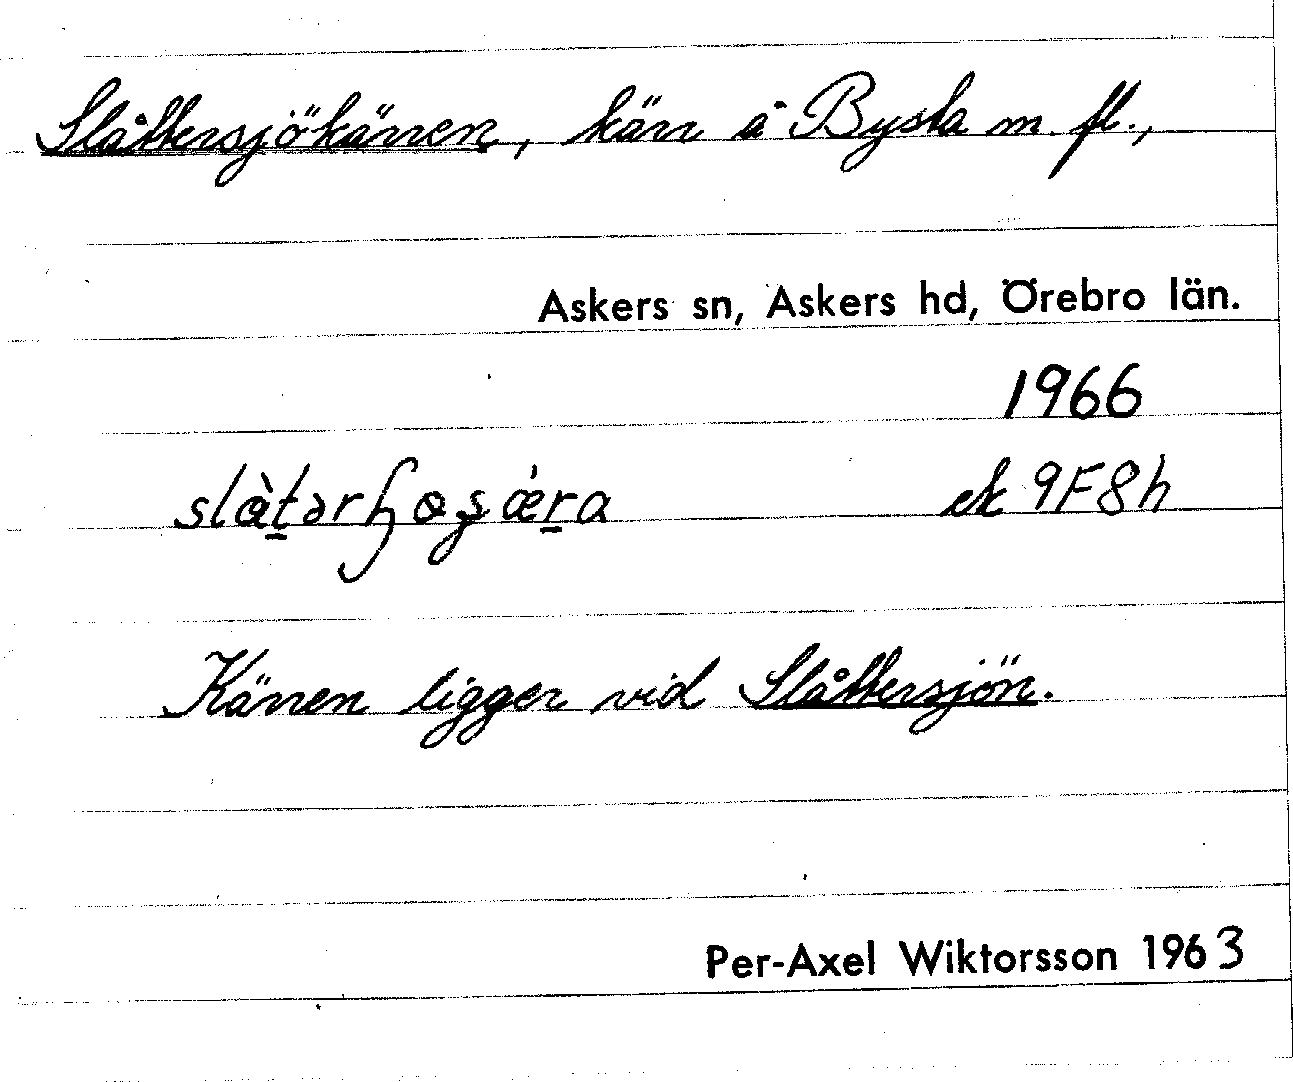 Slåttersjökärren, kärr å Bysta m. fl.,
Askers sn, Askers hd, Örebro län.
1966
ek 9F8h
Kärren ligger vid Slåttersjön.
Per-Axel Wiktorsson 1963